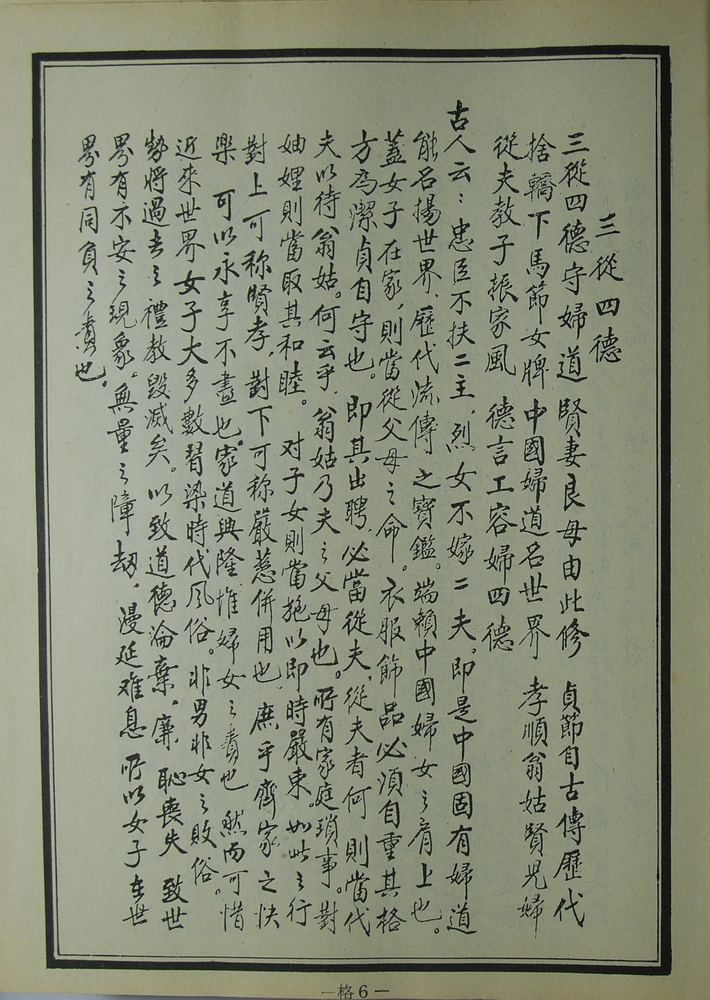 三從四德
三從四德守婦道 賢妻良母由此修 貞節自古傳歷代
捨轎下馬節女牌 中國婦道名世界 孝順翁姑賢児婦
從夫教子振家風 德言工容婦四德
古人云：忠臣不扶二主，烈女不嫁二夫。即是中國固有婦道
能名揚世界，歷代流傳之寶鑑。端賴中國婦女之肩上也。
蓋女子在家，則當從父母之命。衣服飾品必須自重其格
方為潔貞自守也。即其出聘，必當從夫，從夫者何 則當代
夫以待翁姑。何云乎，翁姑乃夫之父母也。所有家庭瑣事。對
妯娌則當取其和睦。 对子女則當施以即時嚴束。如此之行
對上可称賢孝，對下可称嚴慈併用也，庶乎齊家之快
樂 可以永享不盡也。家道興隆惟婦女之責也 然而可惜
近來世界女子大多數習染時代風俗。非男非女之敗俗。
勢將過去之禮教毀滅矣。以致道德淪棄，廉恥喪失 致世
界有不安之現象。無量之障劫，漫延难息 所以女子在世
界有同負之責也。
—格6—